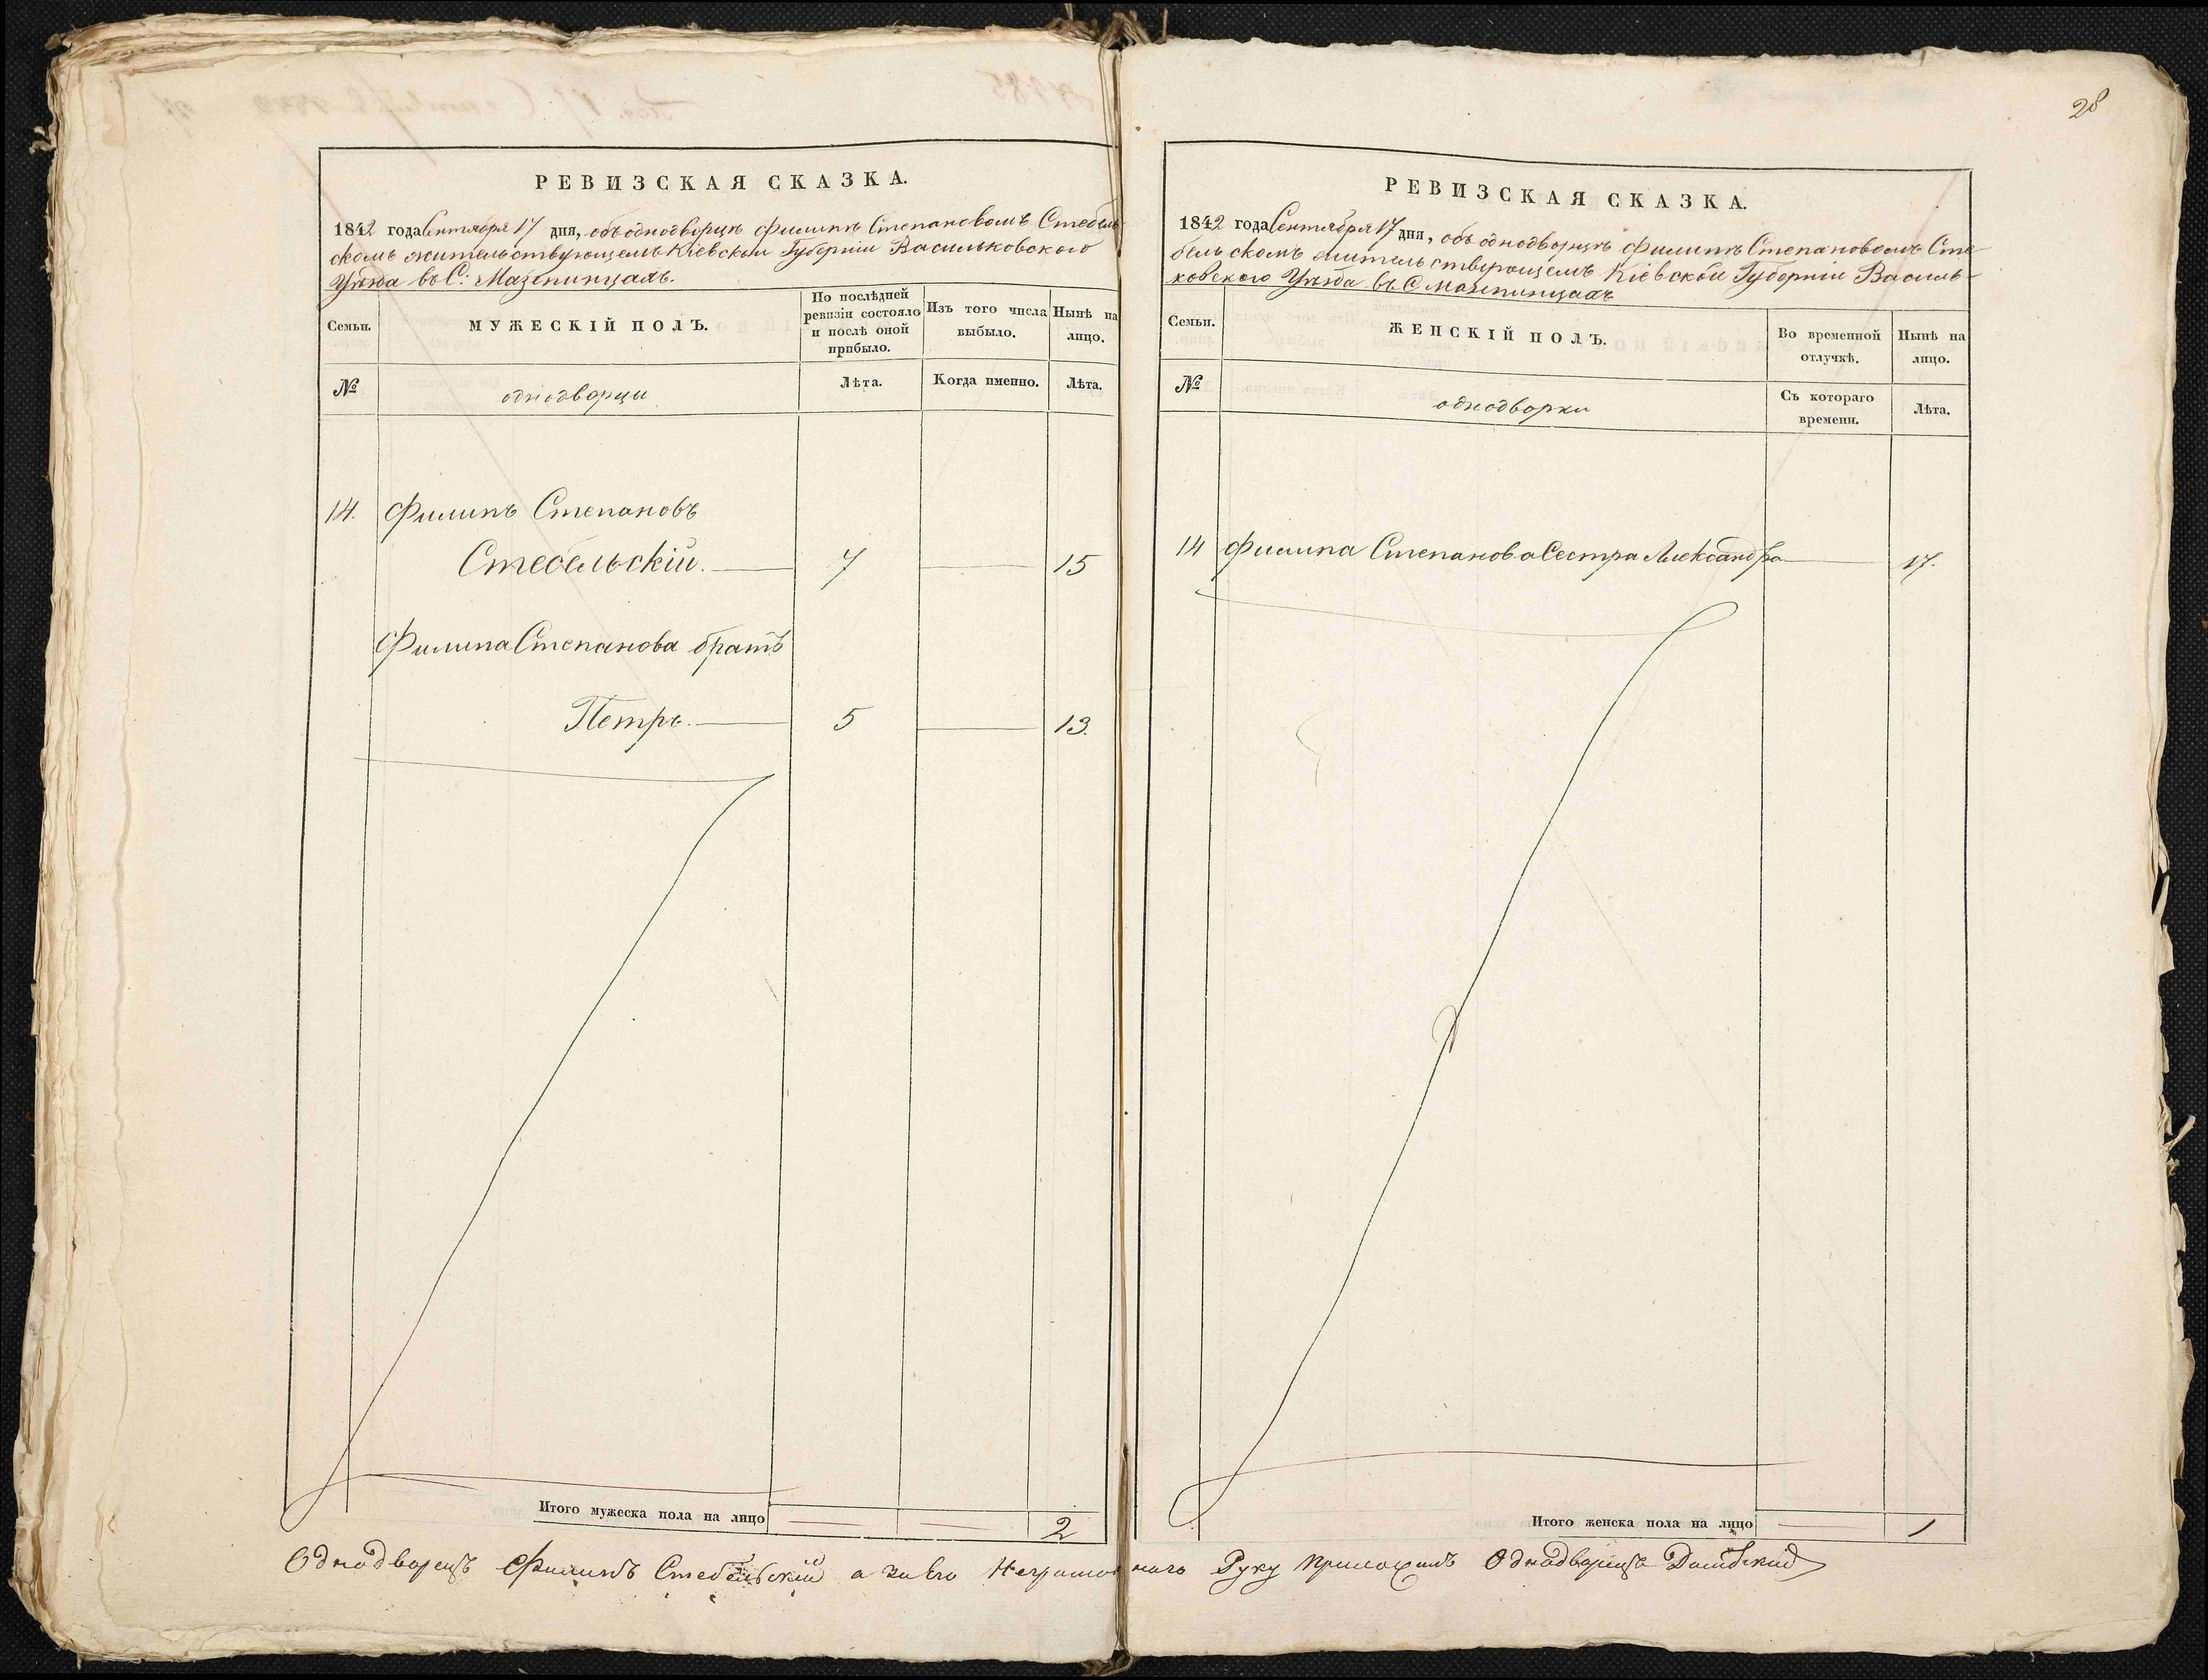 РЕВИЗСКАЯ СКАЗКА.
1842 года Сентября 17 дня, объ однодворцѣ Филиппѣ Степановомъ Стебель
скомъ жительствующемъ Кіевской Губерніи Васильковского
Уѣзда въ С. Мазепинцахъ.
Семьи.
МУЖЕСКІЙ ПОЛЪ.
По послѣдней
ревизіи состояло
и послѣ оной
прибыло.
Изъ того числа
выбыло.
Нынѣ на
лицо.
№
однодворци
Лѣта.
Когда именно.
Лѣта.
14. Филипъ Степановъ
Стебельскій. 7 15
Филипа Степанова братъ
Петръ. 5 13.
Итого мужеска пола на лицо 2
28
РЕВИЗСКАЯ СКАЗКА.
1842 года Сентября 17 дня, объ однодворцѣ Филиппѣ Степановомъ Сте-
бельскомъ жительствующемъ Кіевской Губерніи Василь-
ковского Уѣзда въ С Мазепинцахъ
Семьи.
ЖЕНСКІЙ ПОЛЪ.
Во временной
отлучкѣ.
Нынѣ на
лицо.
№
однодворки
Съ котораго
времени.
Лѣта.
14 Филипа Степанова Сестра Александра 17.
Итого женска пола на лицо 1
Однодворецъ Филипъ Стебельскій а за Его Неграмотного Руку приложилъ Однодворецъ